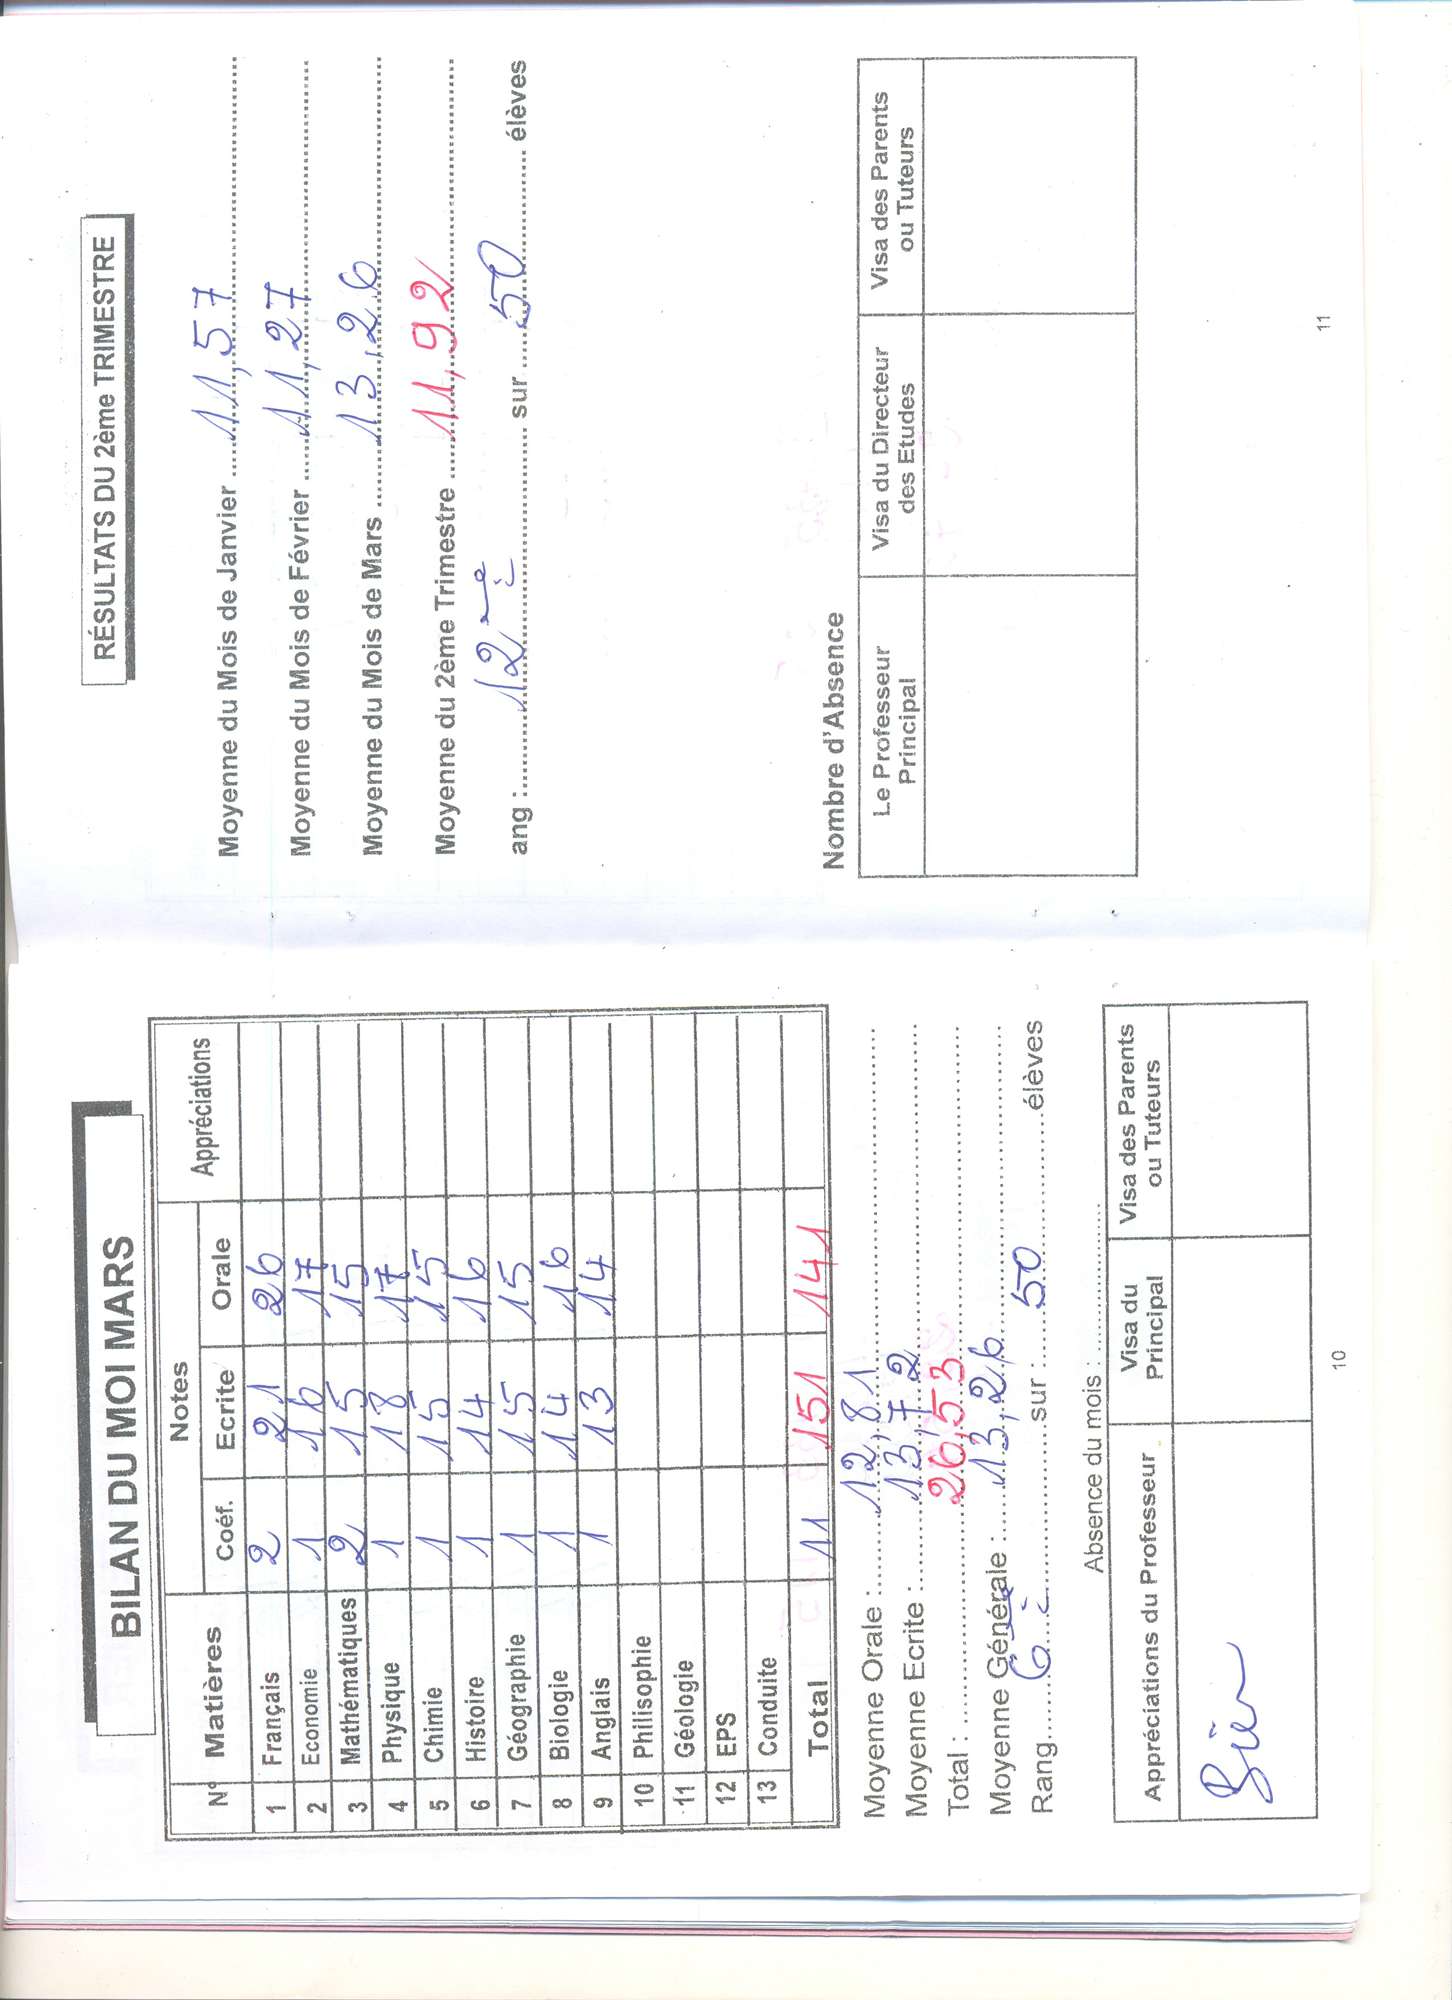 BILAN DU MOI MARS
N° Matières Notes Appréciations
Coéf. Ecrite Orale
1 Français 2 21 26
2 Economie 1 16 17
3 Mathématiques 2 15 15
4 Physique 1 18 17
5 Chimie 1 15 15
6 Histoire 1 14 16
7 Géographie 1 15 15
8 Biologie 1 14 16
9 Anglais 1 13 14
10 Philisophie
11 Géologie
12 EPS
13 Conduite
Total 11 151 141
Moyenne Orale : 12,81
Moyenne Ecrite : 13,72
Total : 26,53
Moyenne Générale : 13,26
Rang 6è sur : 50 élèves
Absence du mois :
Appréciations du Professeur Visa du Principal Visa des Parents ou Tuteurs
Bien
10
RÉSULTATS DU 2ème TRIMESTRE
Moyenne du Mois de Janvier 11,57
Moyenne du Mois de Février 11,27
Moyenne du Mois de Mars 13,26
Moyenne du 2ème Trimestre 11,92
ang : 12è sur 50 élèves
Nombre d'Absence
Le Professeur Principal Visa du Directeur des Etudes Visa des Parents ou Tuteurs
11